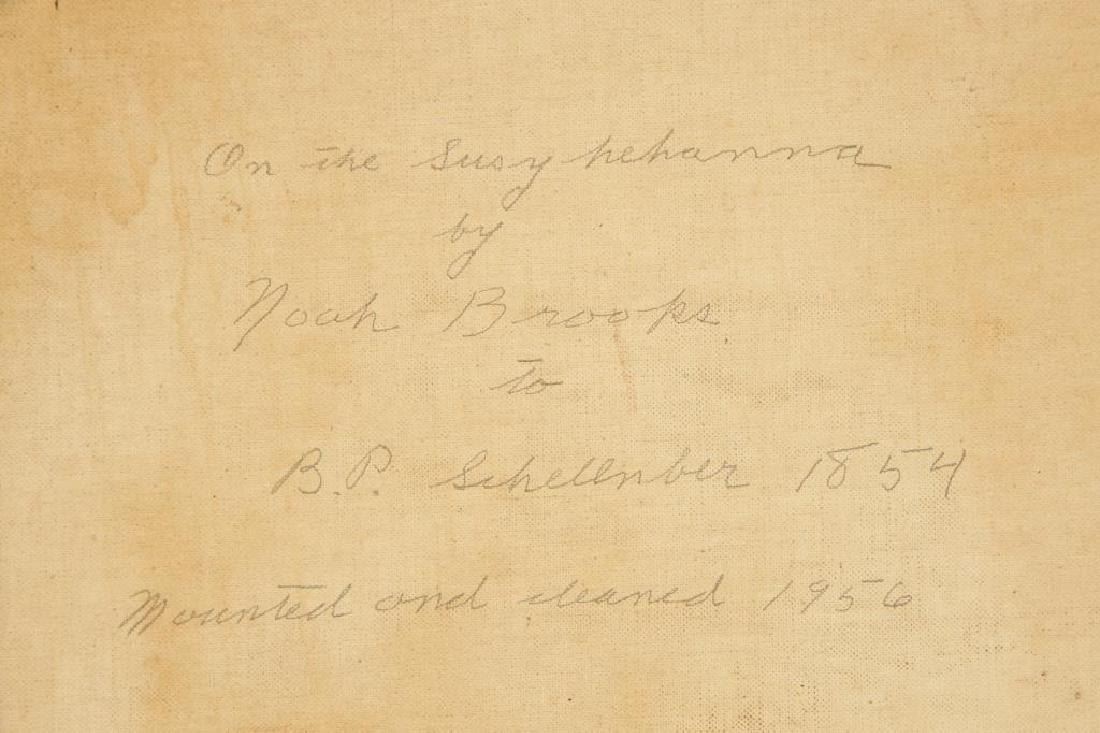 On the Susy hehanna
by
Noah Brooks
to
B.P. Schellnber 1854
Mounted and cleaned 1956